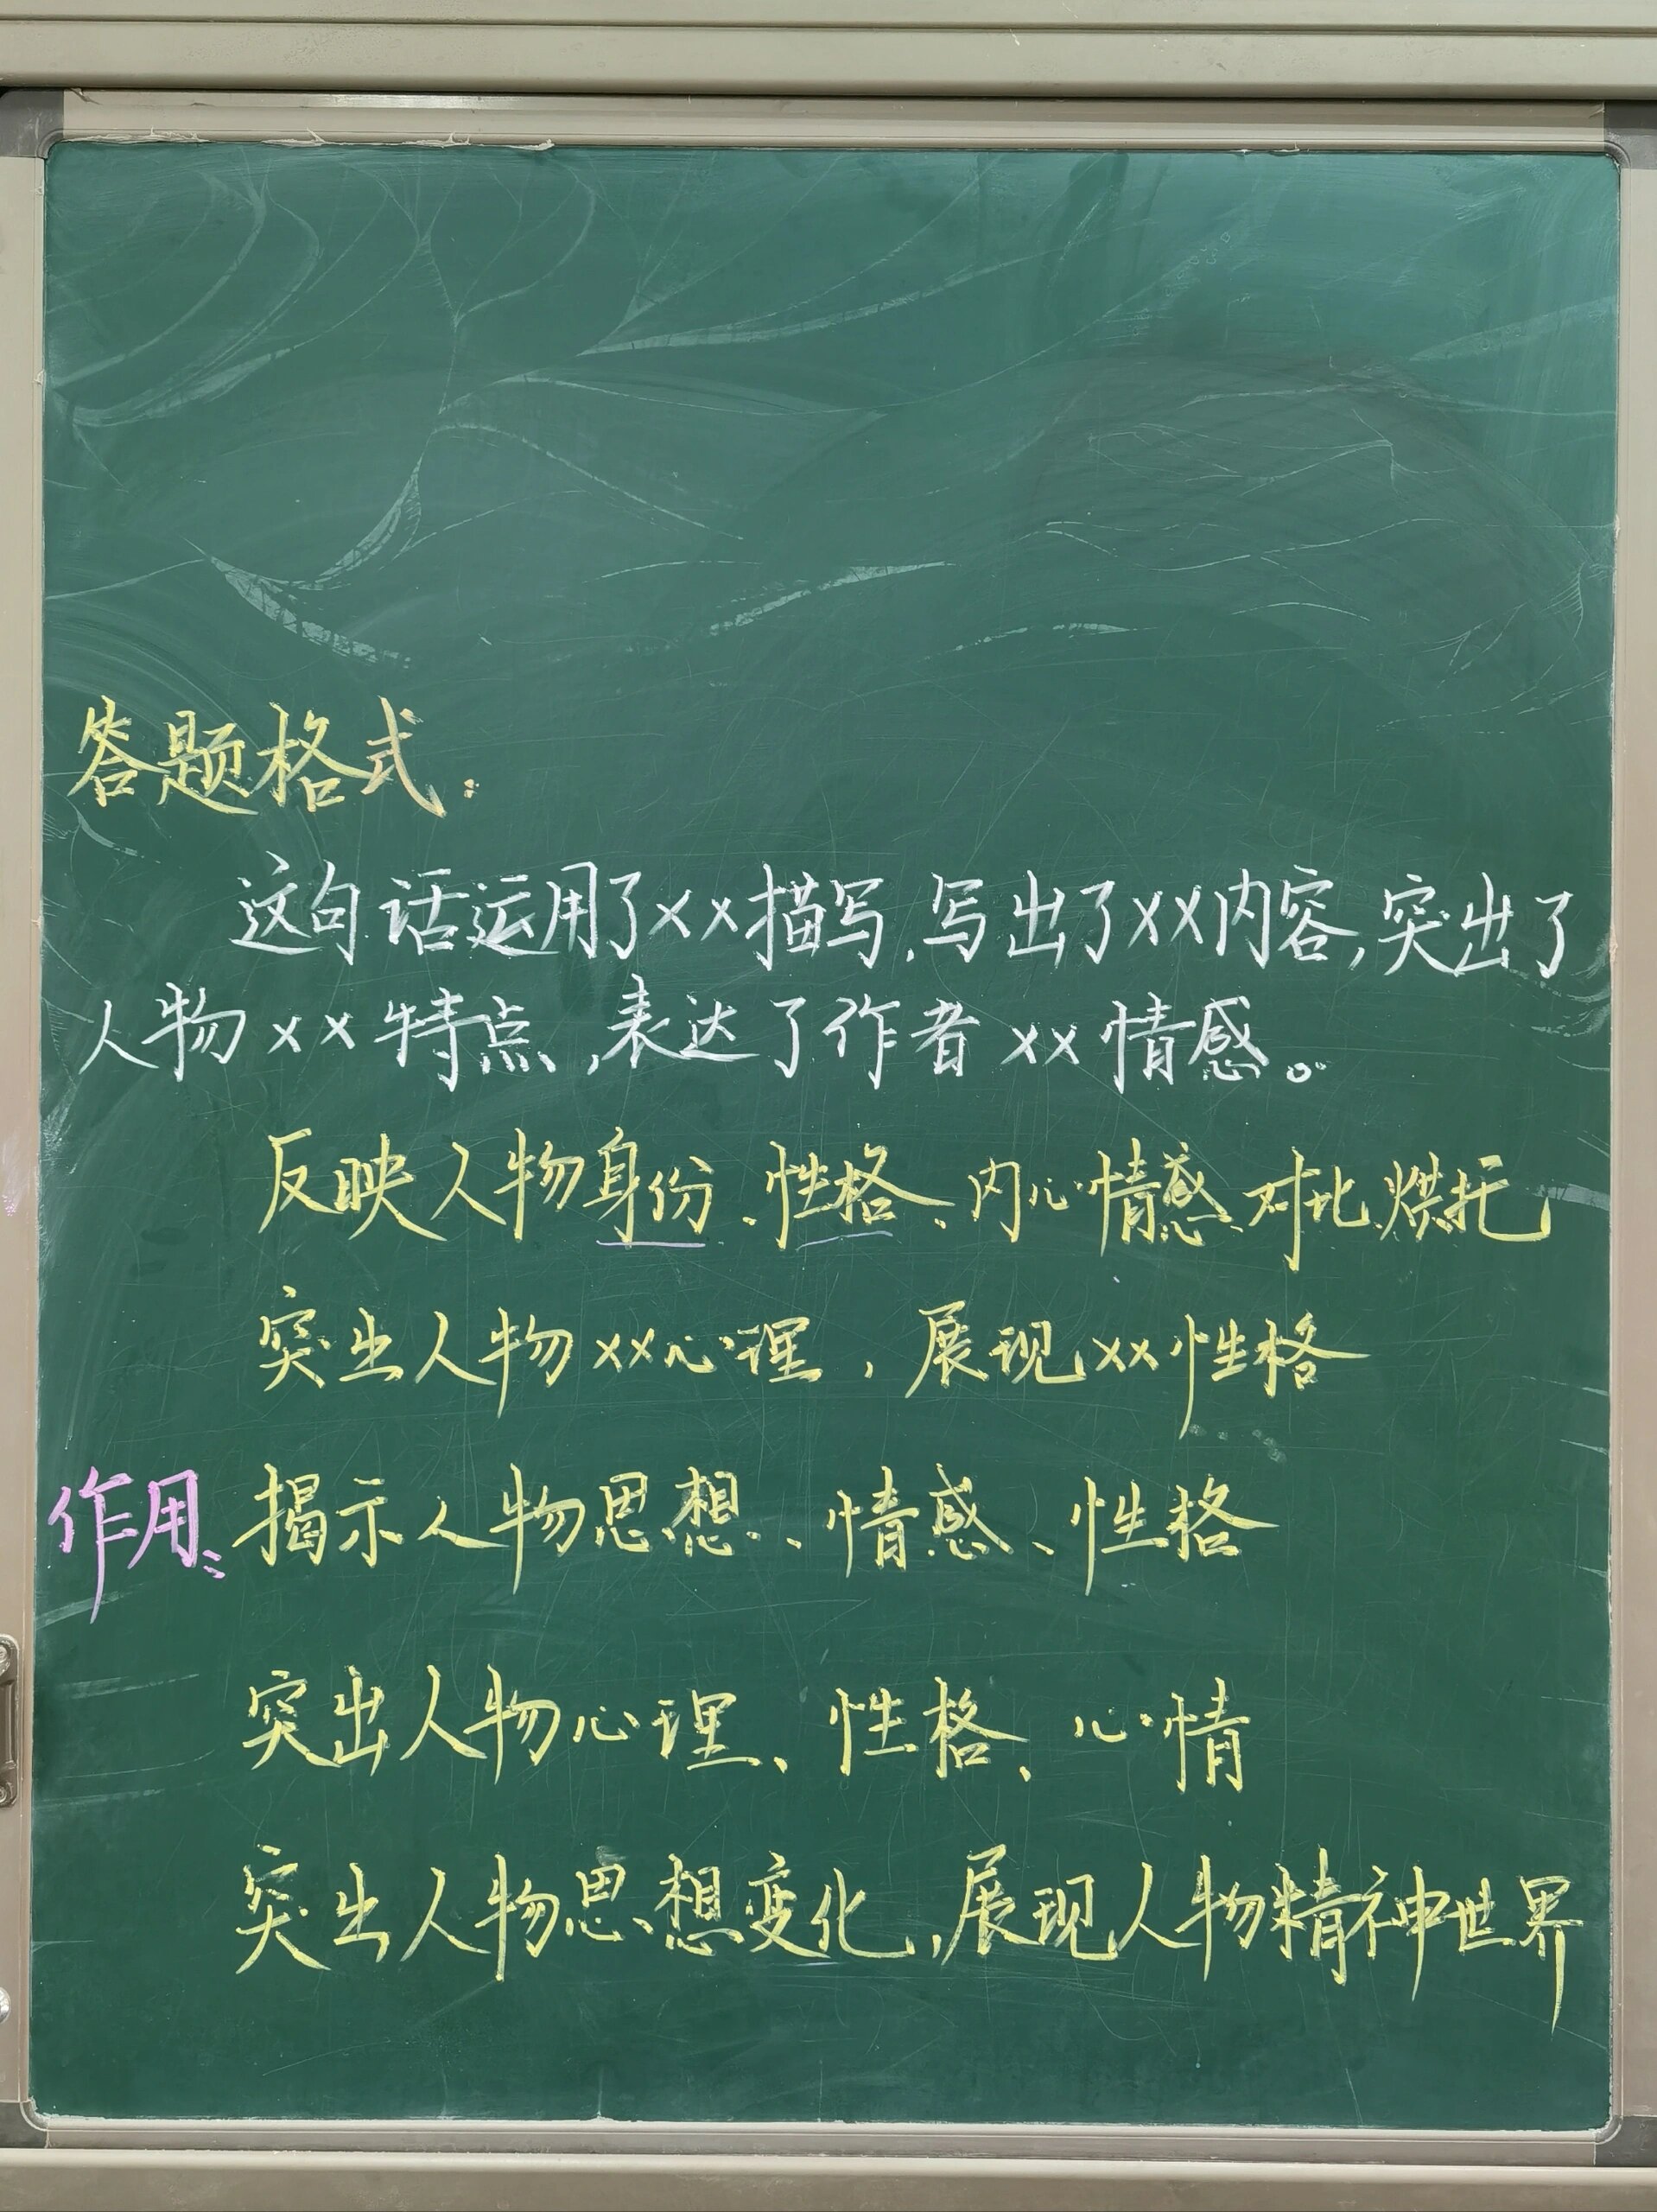 答题格式：
这句话运用了××描写，写出了××内容，突出了
人物××特点，表达了作者××情感。
反映人物身份、性格、内心情感、对比、烘托
突出人物××心理，展现××性格
作用：揭示人物思想、情感、性格
突出人物心理、性格、心情
突出人物思想变化，展现人物精神世界